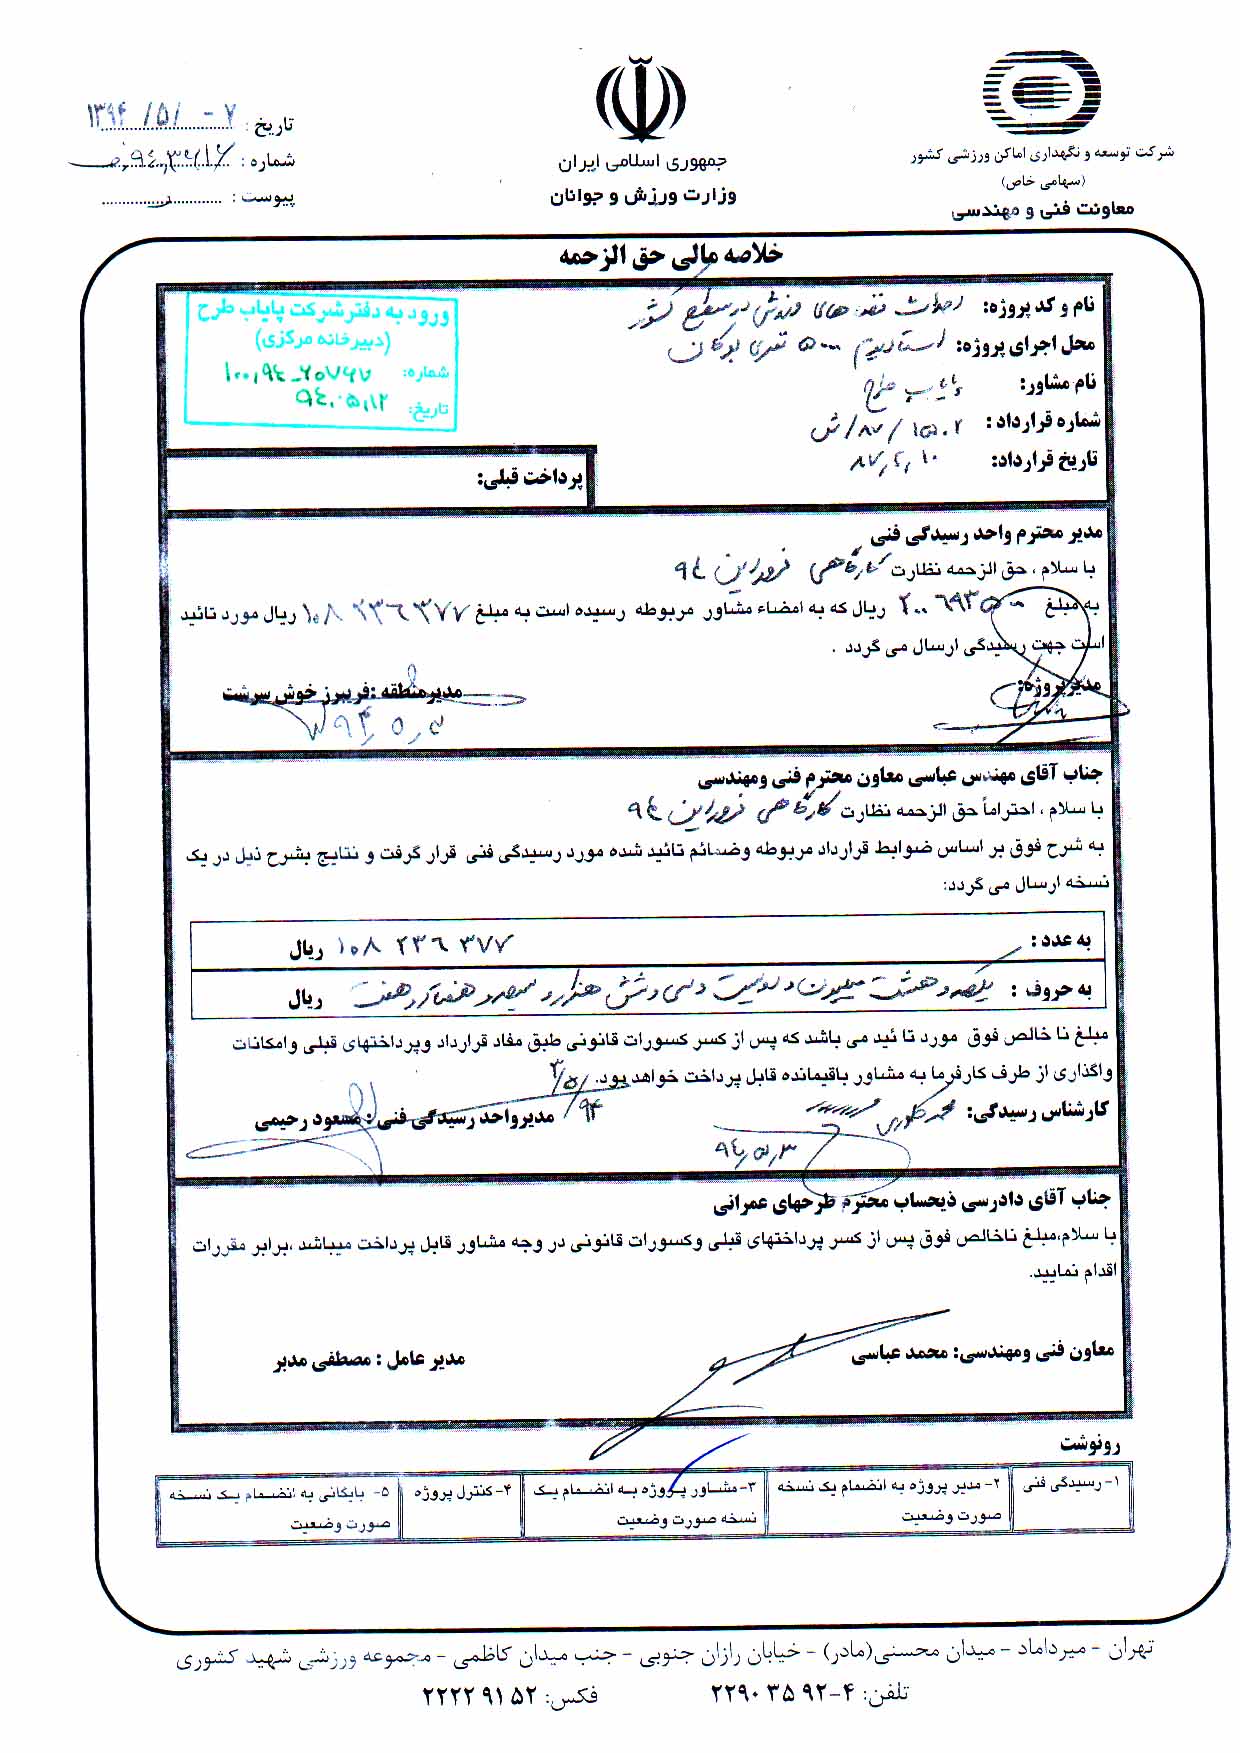 شرکت توسعه و نگهداری اماکن ورزشی کشور
(سهامی خاص)
معاونت فنی و مهندسی
جمهوری اسلامی ایران
وزارت ورزش و جوانان
تاریخ : ۱۳۹۴/۵/۰۷
شماره :
پیوست :
خلاصه مالی حق الزحمه
نام و کد پروژه: احداث های ورزشی در سطح کشور
محل اجرای پروژه: استادیوم ۵۰۰۰ نفری بوکان
نام مشاور: پایاب طرح
شماره قرارداد : ۱۵۰۲/۸۷/ش
تاریخ قرارداد: ۸۷,۶,۱۰
ورود به دفتر شرکت پایاب طرح
(دبیرخانه مرکزی)
شماره: ۱۰۰,۹۴-۲۰۷۶۷
تاریخ: ۹۴,۰۵,۱۲
پرداخت قبلی:
مدیر محترم واحد رسیدگی فنی
با سلام ، حق الزحمه نظارت کارگاهی فروردین ۹۴
به مبلغ ۲۰۰ ۶۹۳ ۵۰۰ ریال که به امضاء مشاور مربوطه رسیده است به مبلغ ۱۰۸ ۲۳۶ ۳۷۷ ریال مورد تائید
است جهت رسیدگی ارسال می گردد .
مدیرپروژه:
مدیرمنطقه :فریبرز خوش سرشت
جناب آقای مهندس عباسی معاون محترم فنی ومهندسی
با سلام ، احتراماً حق الزحمه نظارت کارگاهی فروردین ۹۴
به شرح فوق بر اساس ضوابط قرارداد مربوطه وضمائم تائید شده مورد رسیدگی فنی قرار گرفت و نتایج بشرح ذیل در یک
نسخه ارسال می گردد:
به عدد : ۱۰۸ ۲۳۶ ۳۷۷ ریال
به حروف : یکصد و هشت میلیون و دویست و سی و شش هزار و سیصد و هفتاد و هفت ریال
مبلغ نا خالص فوق مورد تا ئید می باشد که پس از کسر کسورات قانونی طبق مفاد قرارداد وپرداختهای قبلی وامکانات
واگذاری از طرف کارفرما به مشاور باقیمانده قابل پرداخت خواهد بود.
کارشناس رسیدگی: محمد
۹۴,۵,۳
مدیرواحد رسیدگی فنی : مسعود رحیمی
۹۴/۵/۳
جناب آقای دادرسی ذیحساب محترم طرحهای عمرانی
با سلام،مبلغ ناخالص فوق پس از کسر پرداختهای قبلی وکسورات قانونی در وجه مشاور قابل پرداخت میباشد ،برابر مقررات
اقدام نمایید.
معاون فنی ومهندسی: محمد عباسی
مدیر عامل : مصطفی مدبر
رونوشت
۱- رسیدگی فنی
۲- مدیر پروژه به انضمام یک نسخه
صورت وضعیت
۳- مشاور پروژه به انضمام یک
نسخه صورت وضعیت
۴- کنترل پروژه
۵- بایگانی به انضمام یک نسخه
صورت وضعیت
تهران - میرداماد - میدان محسنی(مادر) - خیابان رازان جنوبی - جنب میدان کاظمی - مجموعه ورزشی شهید کشوری
تلفن: ۴-۹۲ ۳۵ ۲۲۹۰ فکس: ۵۲ ۹۱ ۲۲۲۲